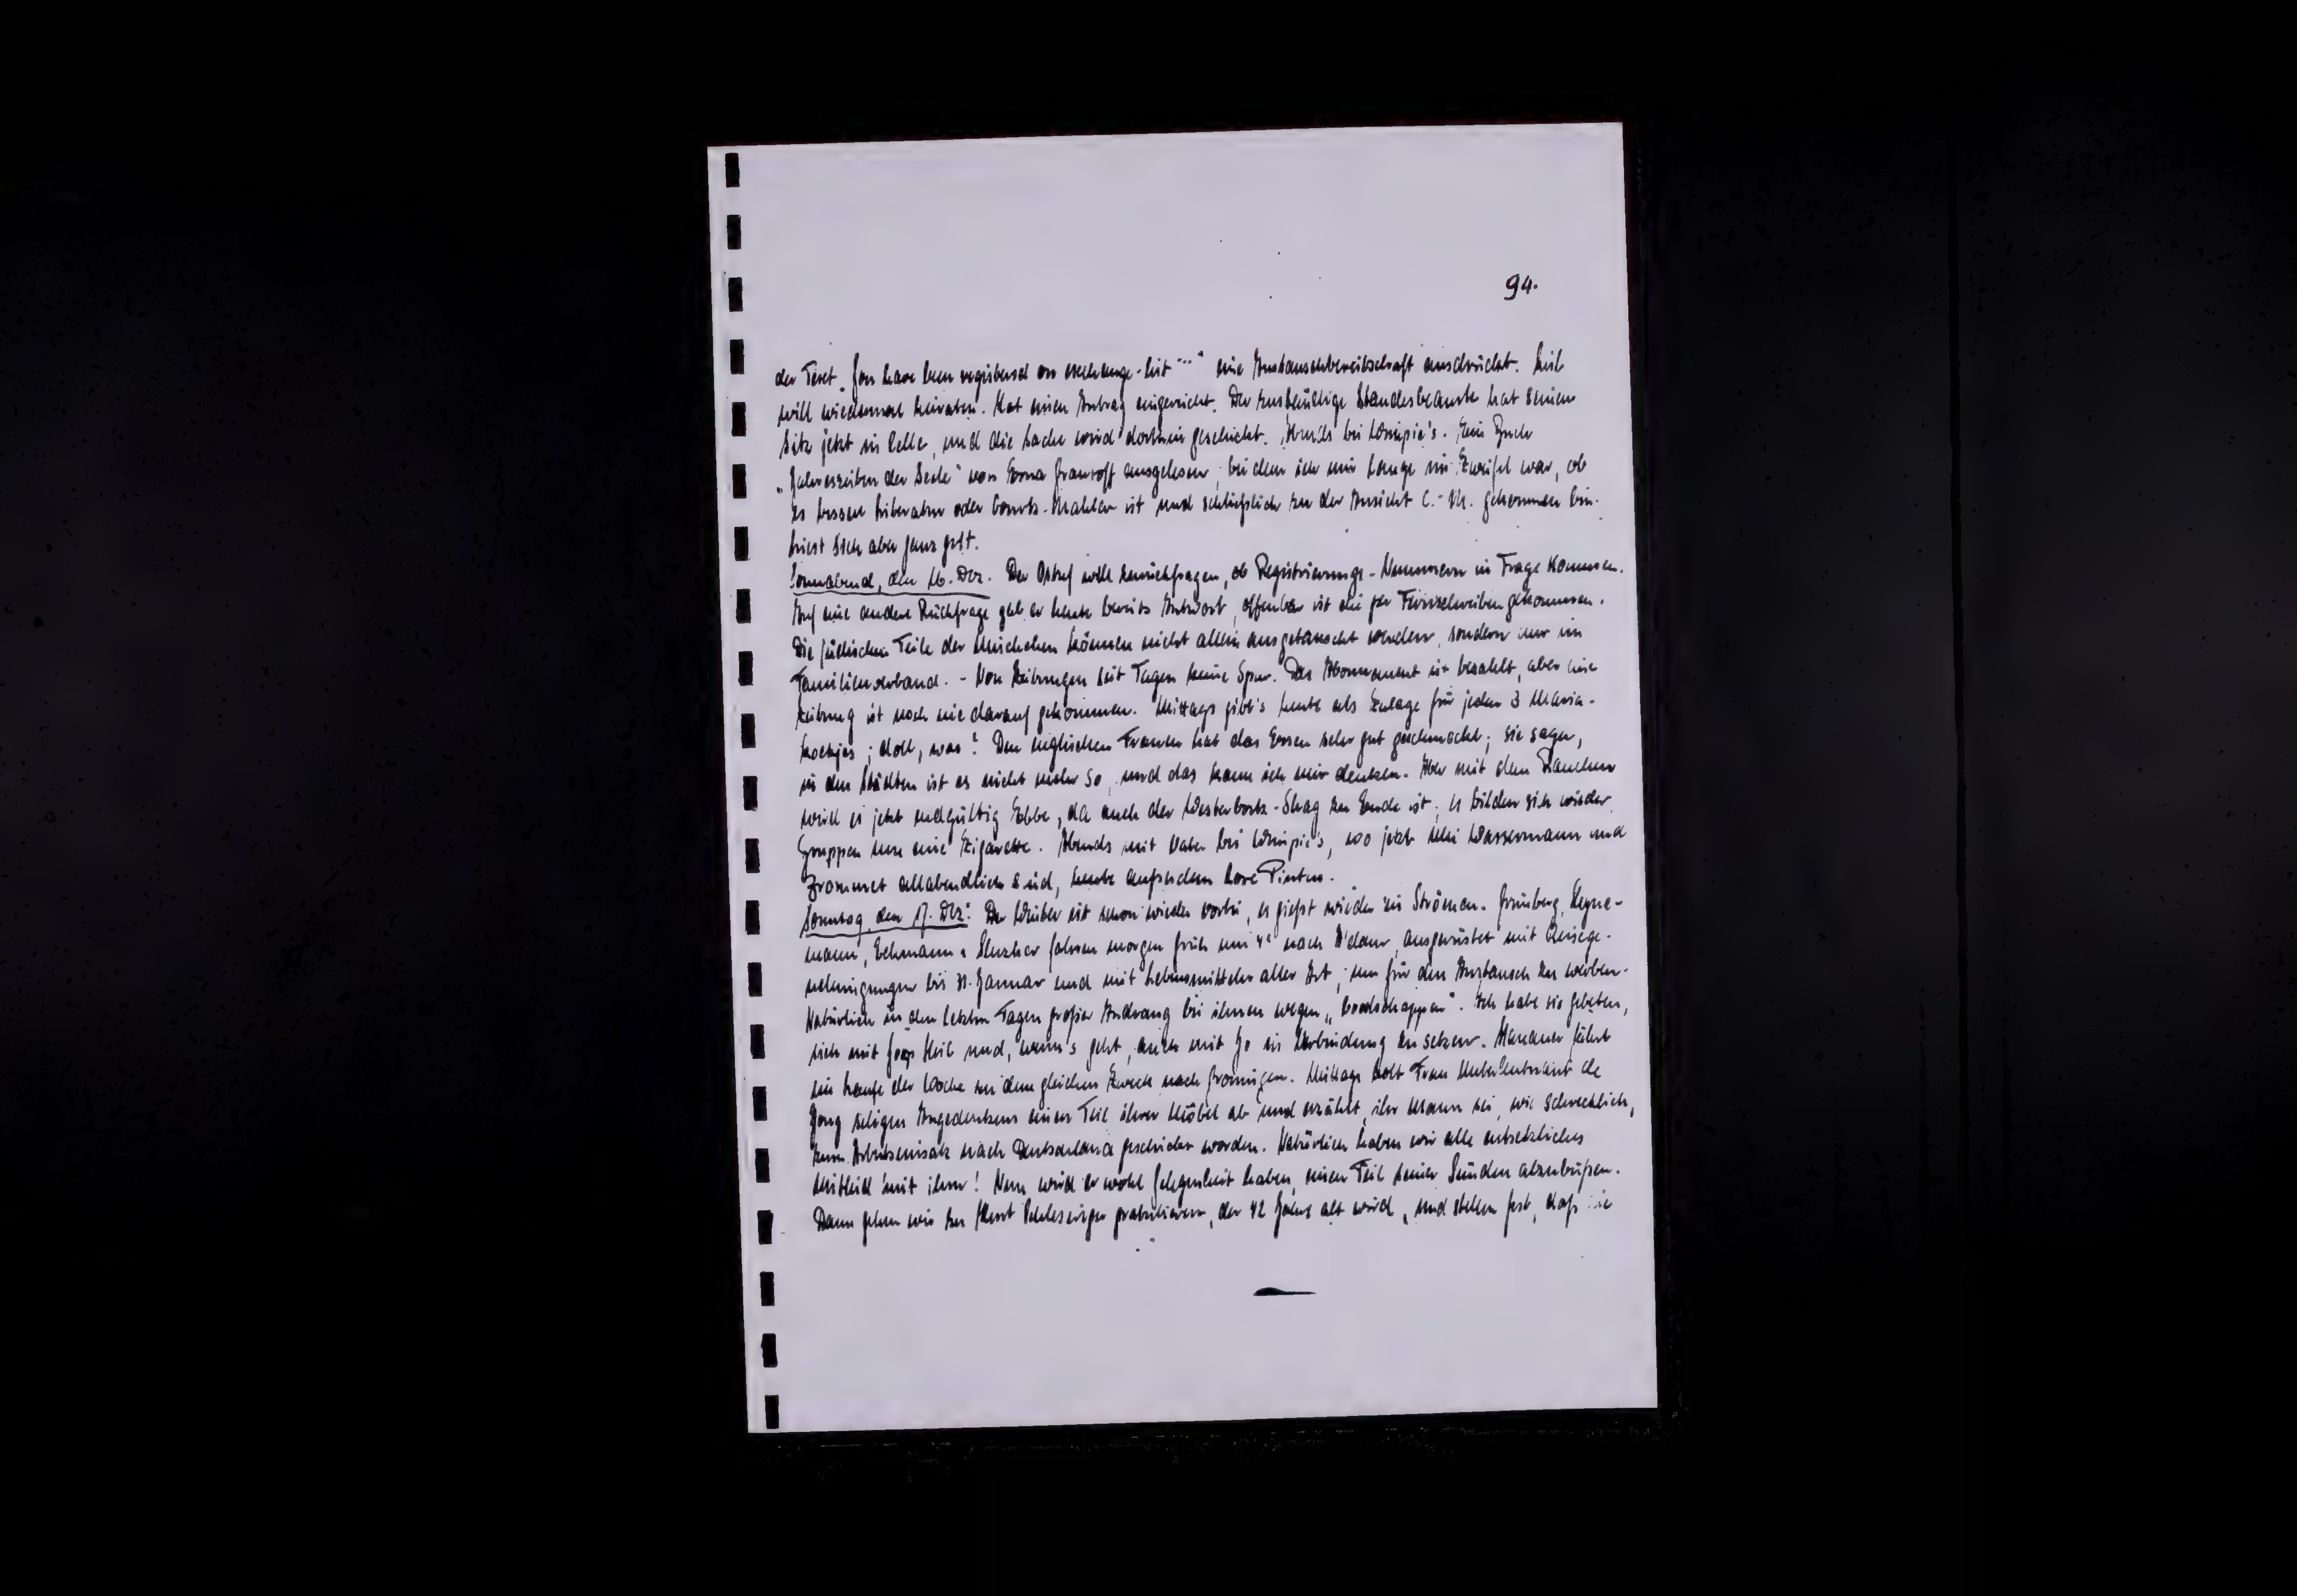 94.
der Text „You have been registered on exchange-list ..." eine Austauschbereitschaft ausdrückt.
will wiedermal heiraten. Hat einen Antrag eingereicht. Der zuständige Standesbeamte hat seinen
Sitz jetzt in Celle, und die Sache wird dorthin geschickt. Abends bei Wimpie's. Ein Buch
„Jahreszeiten der Seele" von Erna ausgelesen, bei dem ich mir lange im Zweifel war, ob
es bessere Literatur oder Courts-Mahler ist und schließlich zu der Ansicht C.-M. gekommen bin.
Liest sich aber ganz gut.
Sonnabend, den 16. Dez. Der will zurückfragen, ob Registrierungs-Nummern in Frage kommen.
Auf eine andere Rückfrage gab er heute bereits Antwort, offenbar ist sie per Fernschreiben gekommen.
Die jüdischen Teile der Mischehen können nicht allein ausgetauscht werden, sondern nur im
Familienverband. - Von Zeitungen seit Tagen keine Spur. Das Abonnement ist bezahlt, aber eine
Zeitung ist noch nie darauf gekommen. Mittags gibt's heute als Zulage für jeden 3 Maria-
koekjes; doll, was! Den englischen Frauen hat das Essen sehr gut geschmeckt; sie sagen,
in den Städten ist es nicht mehr so, und das kann ich mir denken. Aber mit dem Rauchen
wird es jetzt endgültig Ebbe, da auch der Westerbork-Shag zu Ende ist; es bilden sich wieder
Gruppen um eine Zigarette. Abends mit Vater bei Wimpie's, wo jetzt Wassermann und
Frommet allabendlich sind, heute außerdem Lore Pinkus.
Sonntag, den 17. Dez: Der Winter ist schon wieder vorbei, es gießt wieder in Strömen. Grünberg, Heyne-
mann, Eckmann & fahren morgen früh um nach A'dam, ausgerüstet mit Reisege-
nehmigungen bis 31. Januar und mit Lebensmitteln aller Art, um für den Austausch zu werben.
Natürlich in den letzten Tagen großer Andrang bei ihnen wegen „boodschappen". Ich habe sie gebeten,
sich mit Joop Heil und, wenn's geht, auch mit Jo in Verbindung zu setzen. fährt
im Laufe der Woche zu dem gleichen Zweck nach Groningen. Mittags holt Frau de
Jong seligen Angedenkens einen Teil ihrer Möbel ab und erzählt, ihr Mann sei, wie schrecklich,
zum Arbeitseinsatz nach Deutschland geschickt worden. Natürlich haben wir alle entsetzliches
Mitleid mit ihm! Nun wird er wohl Gelegenheit haben, einen Teil seiner Sünden abzubüßen.
Dann gehen wir zu Kurt Schlesinger gratulieren, der 42 Jahre alt wird, und stellen fest, daß